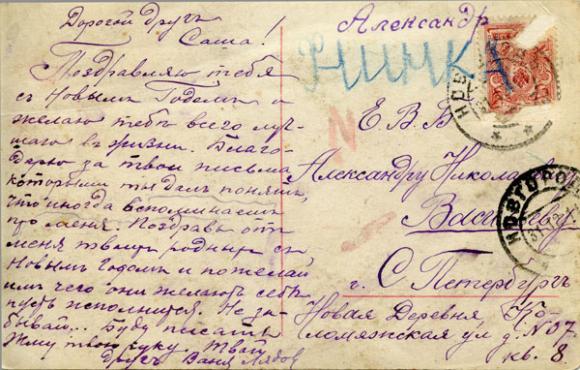 Дорогой другъ
Саша!
Поздравляю тебя
съ Новымъ Годомъ и
желаю тебѣ всего луч-
шаго въ жизни. Благо-
дарю за твои письма
которыми ты далъ понять,
что иногда вспоминаешь
про меня. Поздравь отъ
меня твоихъ родныхъ съ
Новымъ Годомъ и пожелай
имъ чего они желаютъ себѣ
пусть исполнится. Не за-
бывай... Буду писать
Жму твою руку. Твой
другъ Ваня Лядов
Александр
НИНКА
Е. В. В
Александру Никола
Васильеву
г. С Петербургъ
Новая Деревня Ко-
ломяжская ул д. N 07.
кв. 8
НОВГОРОД